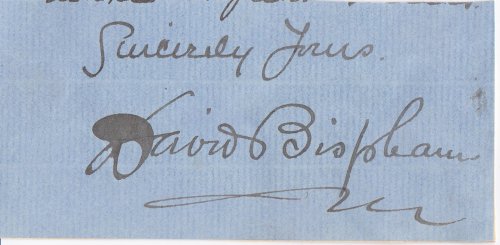 Sincerely Yours.
David Bispham